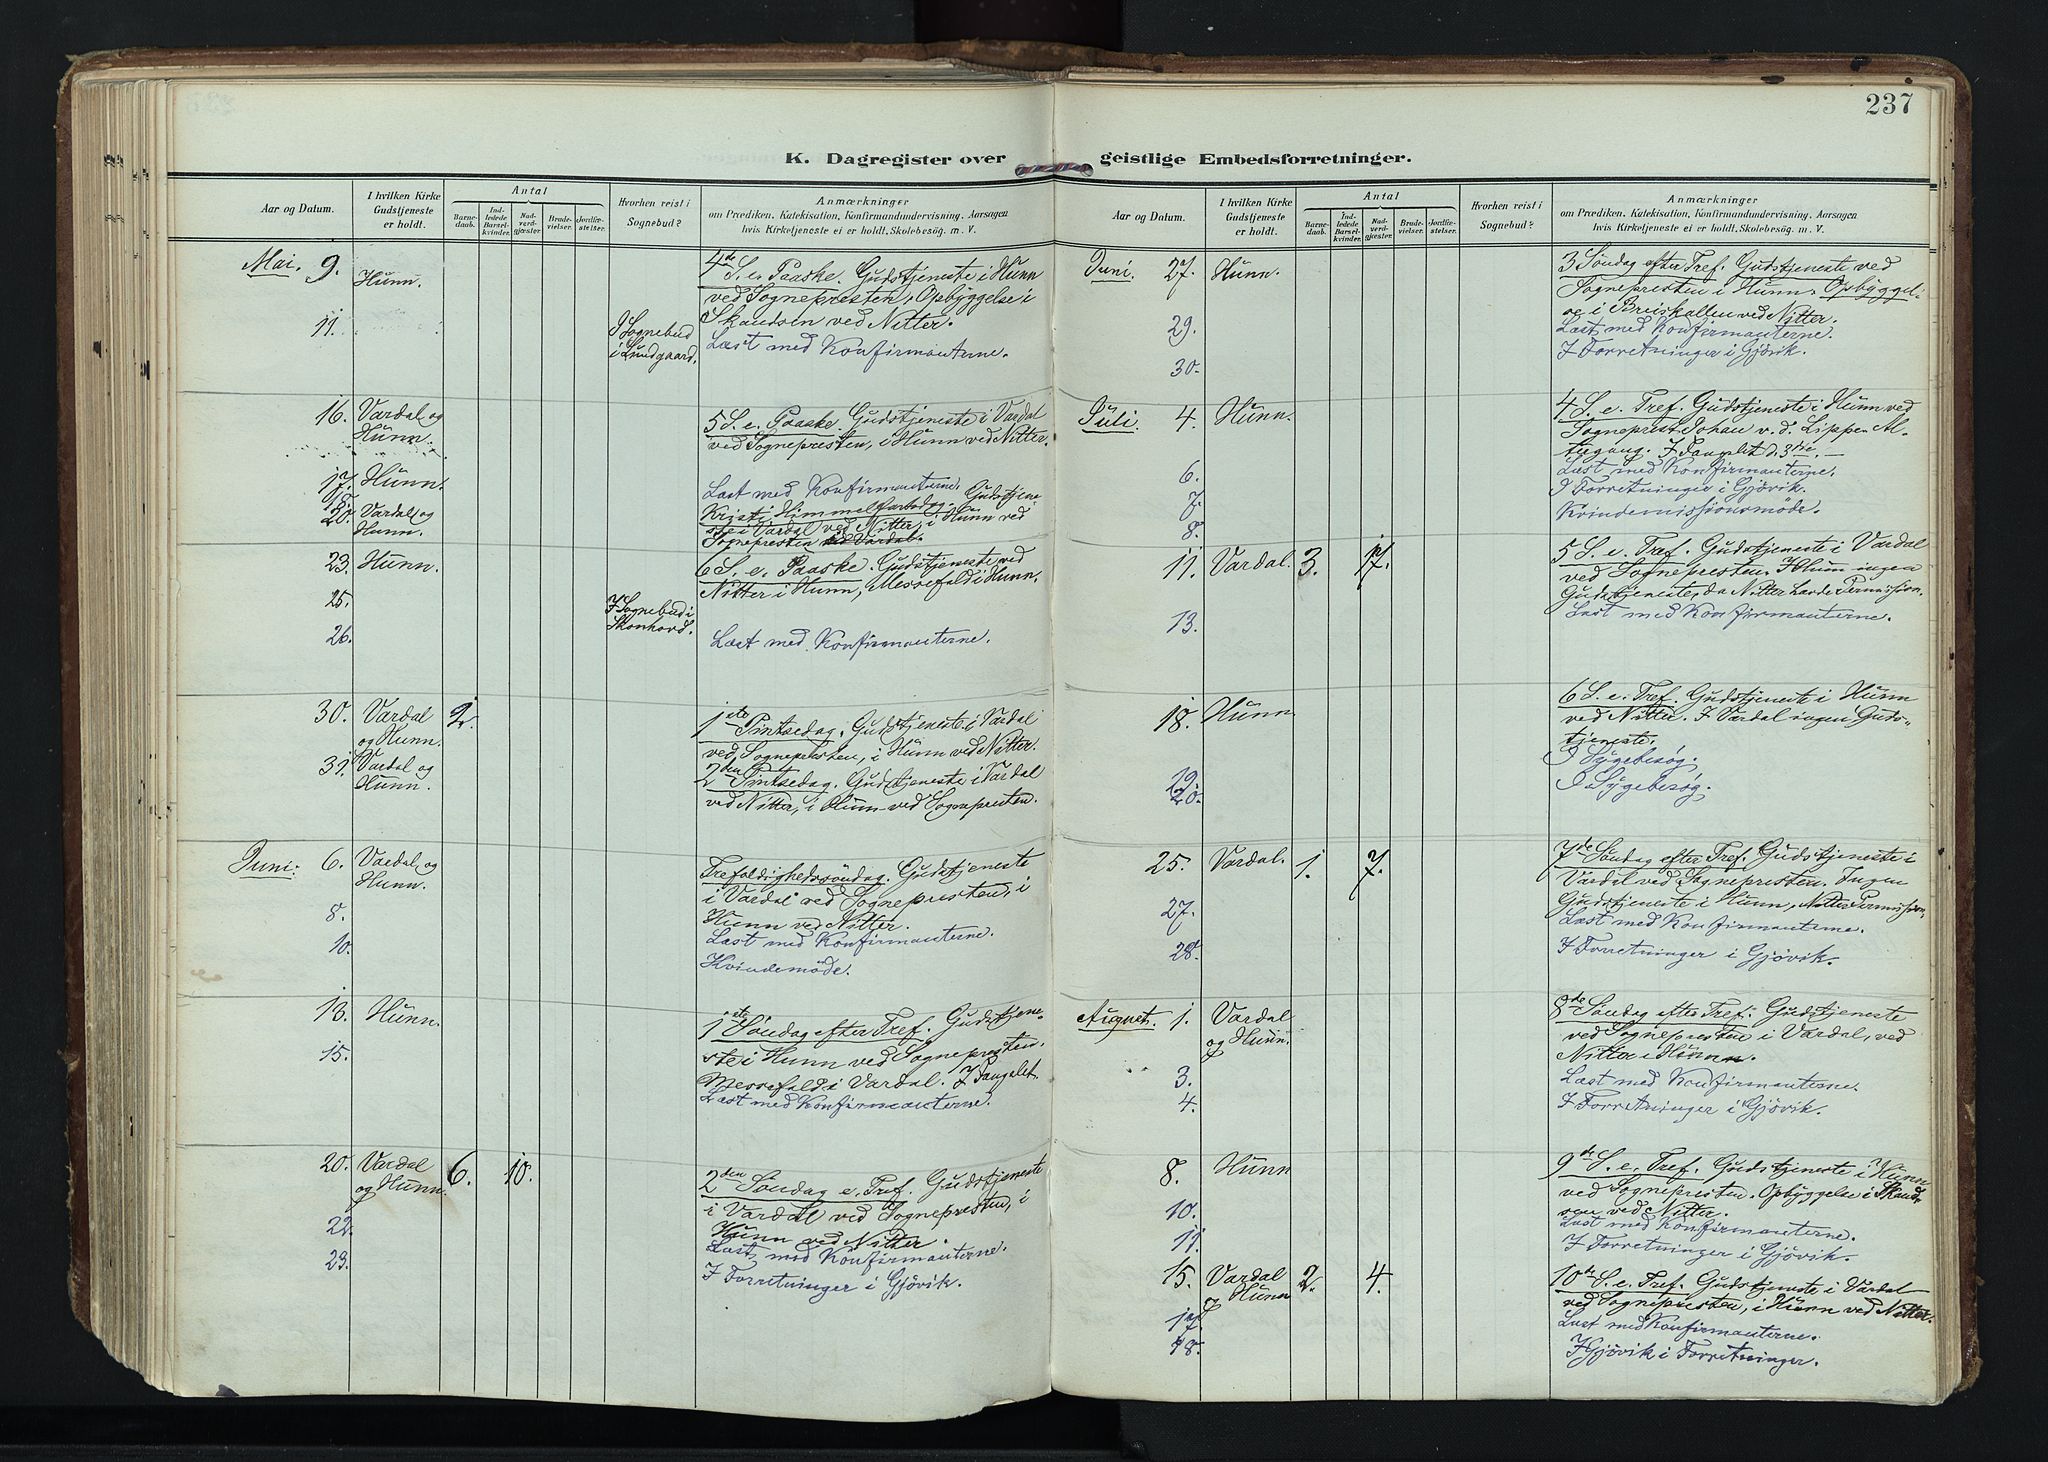 237
K. Dagregister over geistlige Embedsforretninger.
Aar og Datum.
I hvilken Kirke Gudstjeneste er holdt.
Antal
Barnedaab.
Indledede Barselkvinder.
Nadverdgjæster.
Brudevielser.
Jordfæstelser.
Hvorhen reist i Sognebud?
Anmærkninger
om Prædiken, Katekisation, Konfirmandundervisning, Aarsagen
hvis Kirketjeneste ei er holdt, Skolebesøg. m. V.
Mai. 9. Hunn. 4de S. e. Paaske. Gudstjeneste i Hunn
ved Sognepresten, Opbyggelse i
Skandsen ved Nitter.
11. I Sognebud i Lundgaard. Læst med Konfirmanterne.
16. Vardal og Hunn. 5 S. e. Paaske. Gudstjeneste i Vardal
ved Sognepresten, i Hunn ved Nitter.
17. Hunn.
18. Læst med Konfirmanterne.
20. Vardal og Hunn. Kristi Himmelfartsdag. Gudstjene
ste i Vardal ved Nitter, i Hunn ved
Sognepresten ved Vardal.
23. Hunn. 6 S. e. Paaske. Gudstjeneste ved
Nitter i Hunn, Messefald i Hunn.
25. I Sognebud i Skonhord.
26. Læst med Konfirmanterne.
30. Vardal og Hunn. 2. 1ste Pintsedag. Gudstjeneste i Vardal
ved Sognepresten, i Hunn ved Nitter.
31. Vardal og Hunn. 2den Pintsedag. Gudstjeneste i Vardal
ved Nitter, i Hunn ved Sognepresten.
Juni. 6. Vardal og Hunn. Trefoldighedssöndag. Gudstjeneste
i Vardal ved Sognepresten, i
Hunn ved Nitter.
8. Læst med Konfirmanterne.
10. Kvindemöde.
13. Hunn. 1ste Söndag efter Tref. Gudstjene-
ste i Hunn ved Sognepresten.
Messefald i Vardal. I Fængslet.
15. Læst med Konfirmanterne.
20. Vardal og Hunn. 6. 10. 2den Söndag e. Tref. Gudstjeneste
i Vardal ved Sognepresten, i
Hunn ved Nitter.
22. Læst med Konfirmanterne.
23. I Forretninger i Gjövik.
Aar og Datum.
I hvilken Kirke Gudstjeneste er holdt.
Antal
Barnedaab.
Indledede Barselkvinder.
Nadverdgjæster.
Brudevielser.
Jordfæstelser.
Hvorhen reist i Sognebud?
Anmærkninger
om Prædiken, Katekisation, Konfirmandundervisning, Aarsagen
hvis Kirketjeneste ei er holdt, Skolebesøg. m. V.
Juni. 27. Hunn. 3 Söndag efter Tref. Gudstjeneste ved
Sognepresten i Hunn. Opbyggel-
se i Breiskallen ved Nitter.
29. Læst med Konfirmanterne.
30. I Forretninger i Gjövik.
Juli. 4. Hunn. 4 S. e. Tref. Gudstjeneste i Hunn ved
Sogneprest Johan v. d. Lippe. Al-
tergang. I Fængslet d. 3die.
6. Læst med Konfirmanterne.
7. I Forretninger i Gjövik.
8. Kvindemissionsmöde.
11. Vardal. 3. 17. 5 S. e. Tref. Gudstjeneste i Vardal
ved Sognepresten. I Hunn ingen
Gudstjeneste, da Nitter havde Permission.
13. Læst med Konfirmanterne.
18. Hunn. 6 S. e. Tref. Gudstjeneste i Hunn
ved Nitter. I Vardal ingen Guds-
tjeneste.
19. I Sygebesög.
20. I Sygebesög.
25. Vardal. 1. 7. 7de Söndag efter Tref. Gudstjeneste i
Vardal ved Sognepresten. Ingen
Gudstjeneste i Hunn, Nitter Permission.
27. Læst med Konfirmanterne.
28. I Forretninger i Gjövik.
August. 1. Vardal og Hunn. 8de Söndag efter Tref. Gudstjeneste
ved Sognepresten i Vardal, ved
Nitter i Hunn.
3. Læst med Konfirmanterne.
4. I Forretninger i Gjövik.
8. Hunn 9de S. e. Tref. Gudstjeneste i Hunn
ved Sognepresten. Opbyggelse i Skand-
sen ved Nitter.
10. Læst med Konfirmanterne.
11. I Forretninger i Gjövik.
15. Vardal og Hunn 2. 4. 10de S. e. Tref. Gudstjeneste i Vardal
ved Sognepresten, i Hunn ved Nitter.
17. Læst med Konfirmanterne.
18. I Gjövik i Forretninger.